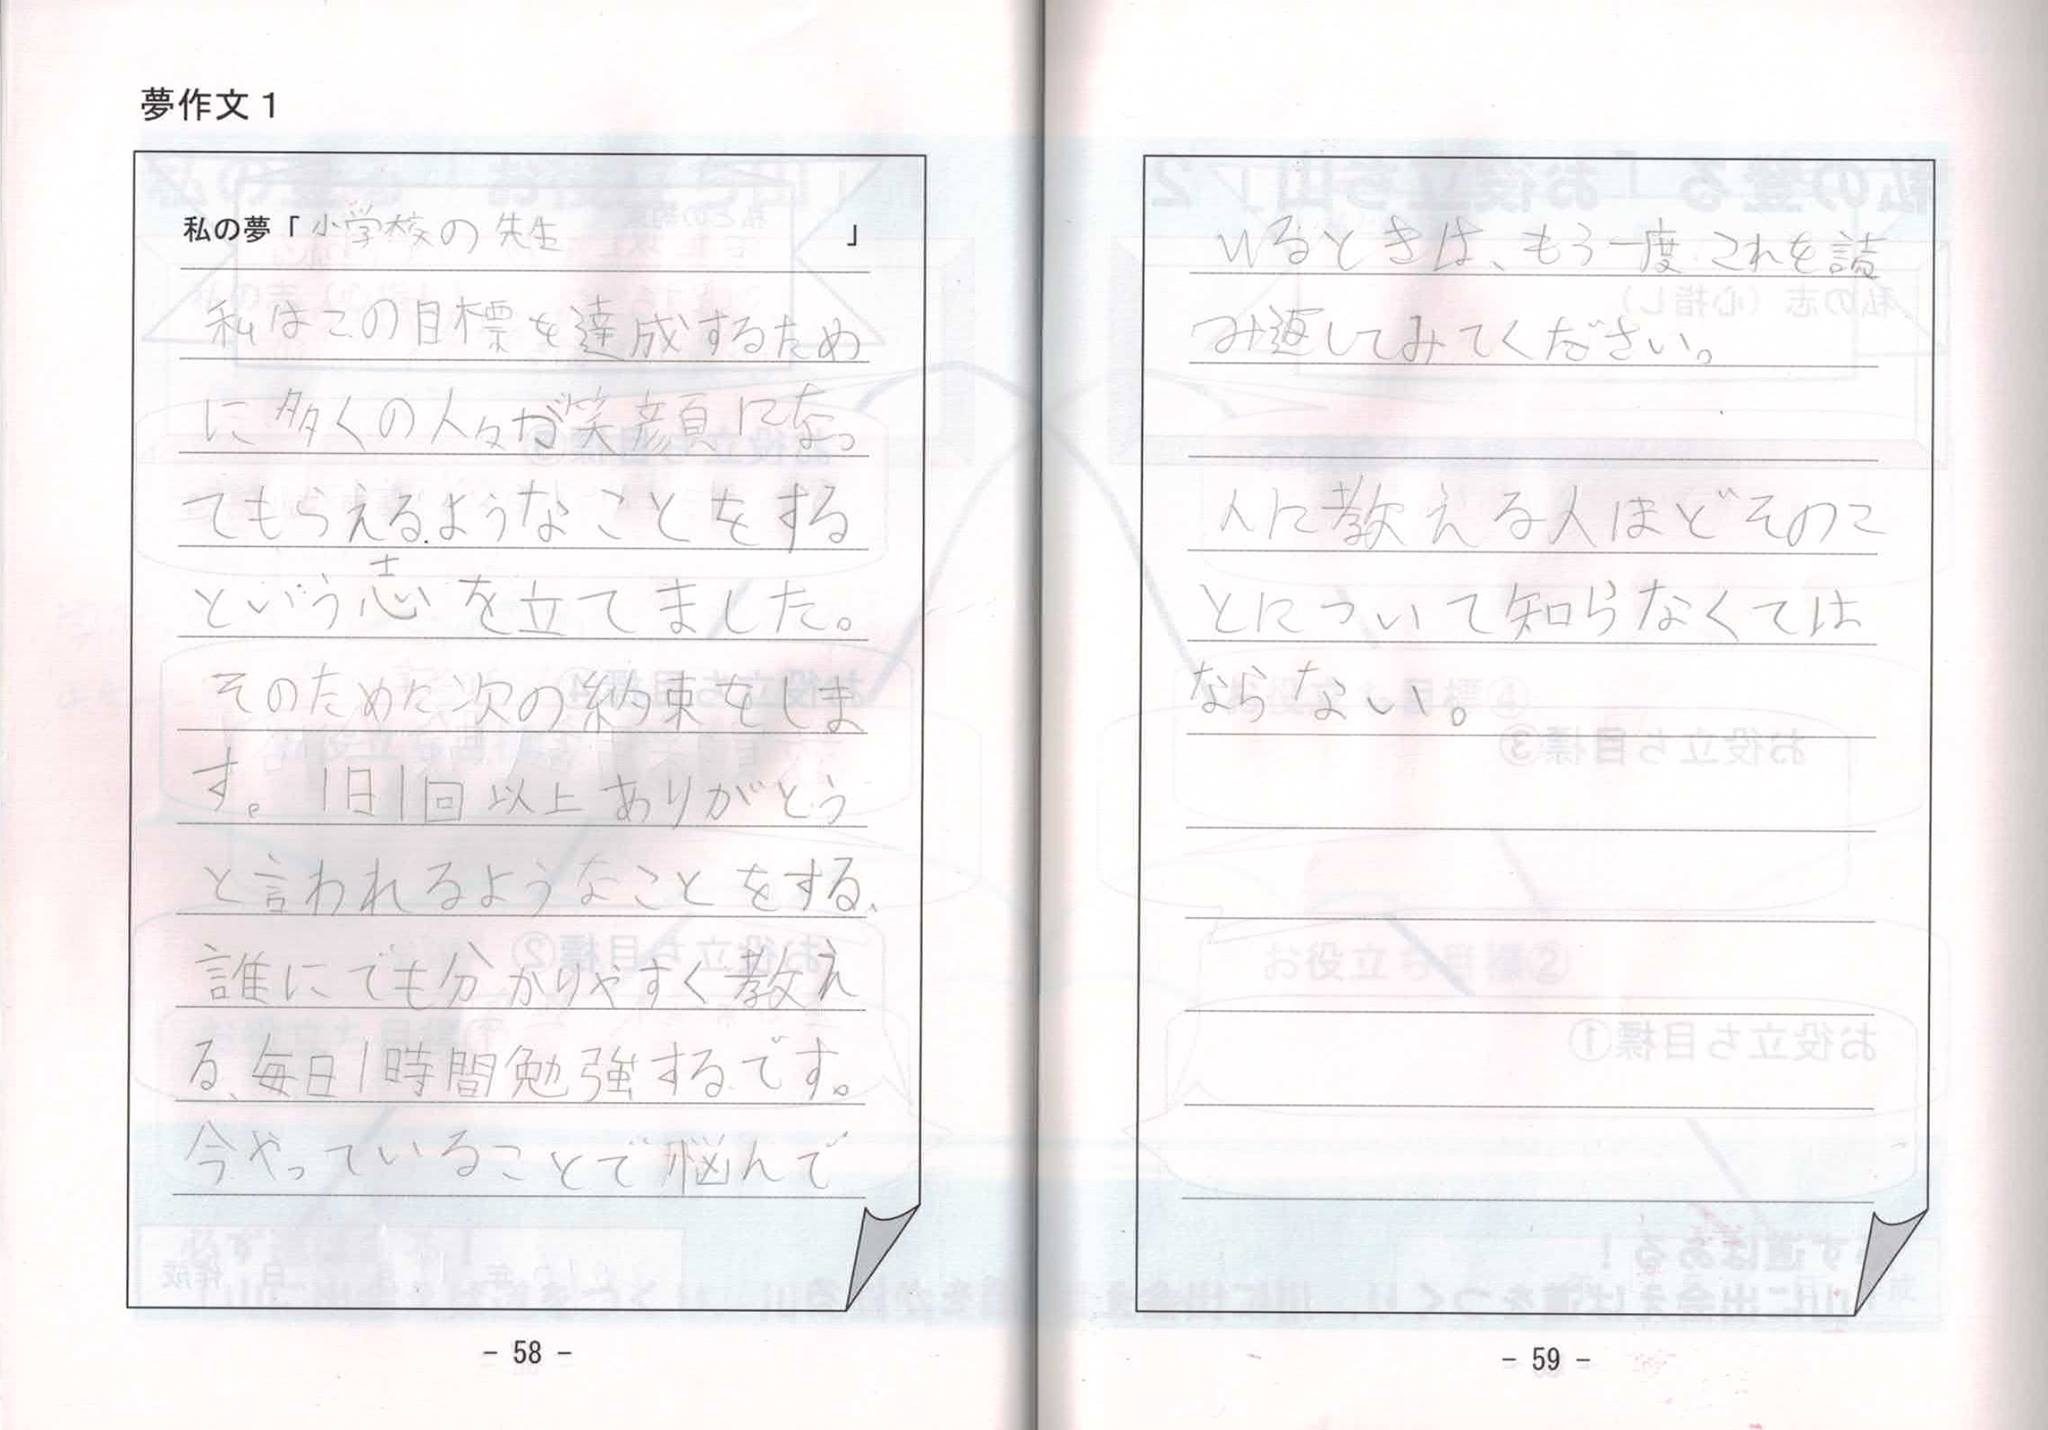 夢作文1
私の夢「小学校の先生」
私はこの目標を達成するため
に多くの人々が笑顔になっ
てもらえるようなことをする
という志を立てました。
そのために次の約束をしま
す。1日1回以上ありがとう
と言われるようなことをする、
誰にでも分かりやすく教え
る、毎日1時間勉強するです。
今やっていることで悩んで
- 58 -
いるときは、もう一度これを読
み返してみてください。
人に教える人ほどそのこ
とについて知らなくては
ならない。
- 59 -